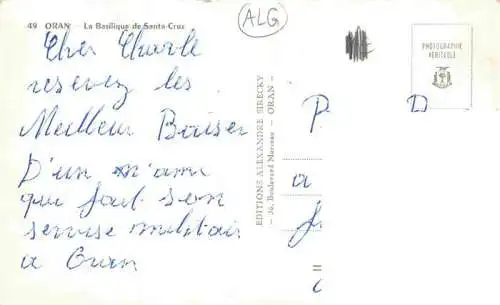 49 ORAN — La Basilique de Santa-Cruz
ALG
Cher Charle
resevez les
Meilleur Baiser
D'un m'ami
que fait son
servise militair
a Oran
EDITIONS ALEXANDRE SIBECKY
— 30, Boulevard Marceau — ORAN —
PHOTOGRAPHIE
VERITABLE
P D
a